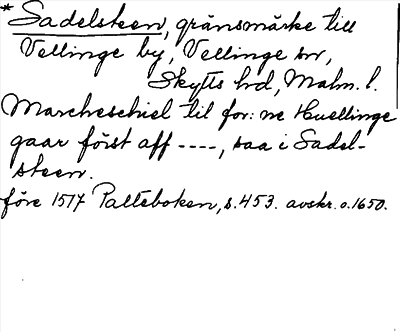 * Sadelsteen, gränsmärke till
Vellinge by, Vellinge sn,
Skytts hd, Malm. l.
Marcheschiel til for: ne Huellinge
gaar först aff ----, saa i Sadel-
steen.
före 1517 Palteboken, s. 453. avskr. o. 1650.